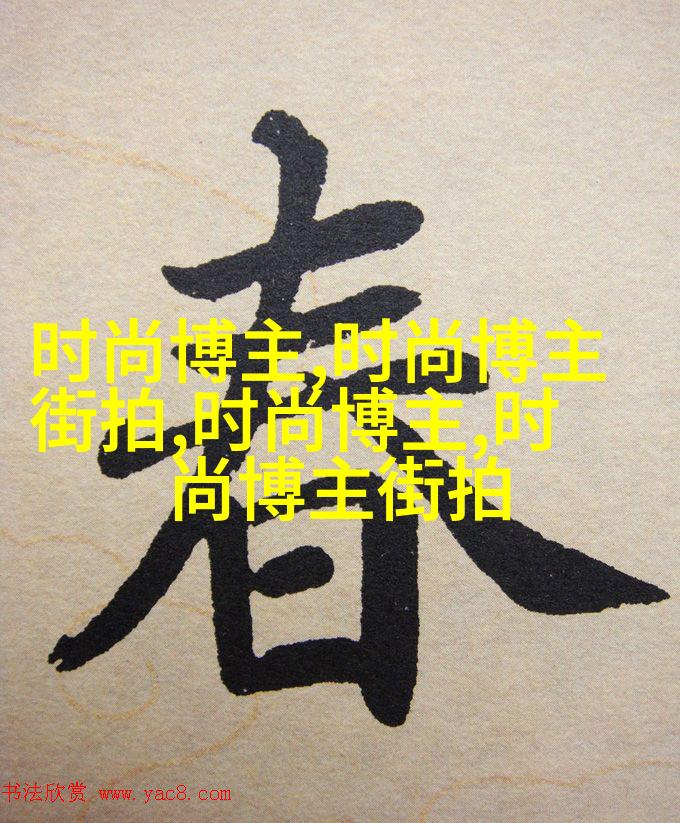 春
时尚博主,时尚博主
街拍,时尚博主,时
尚博主街拍
书法欣赏 www.yac8.com